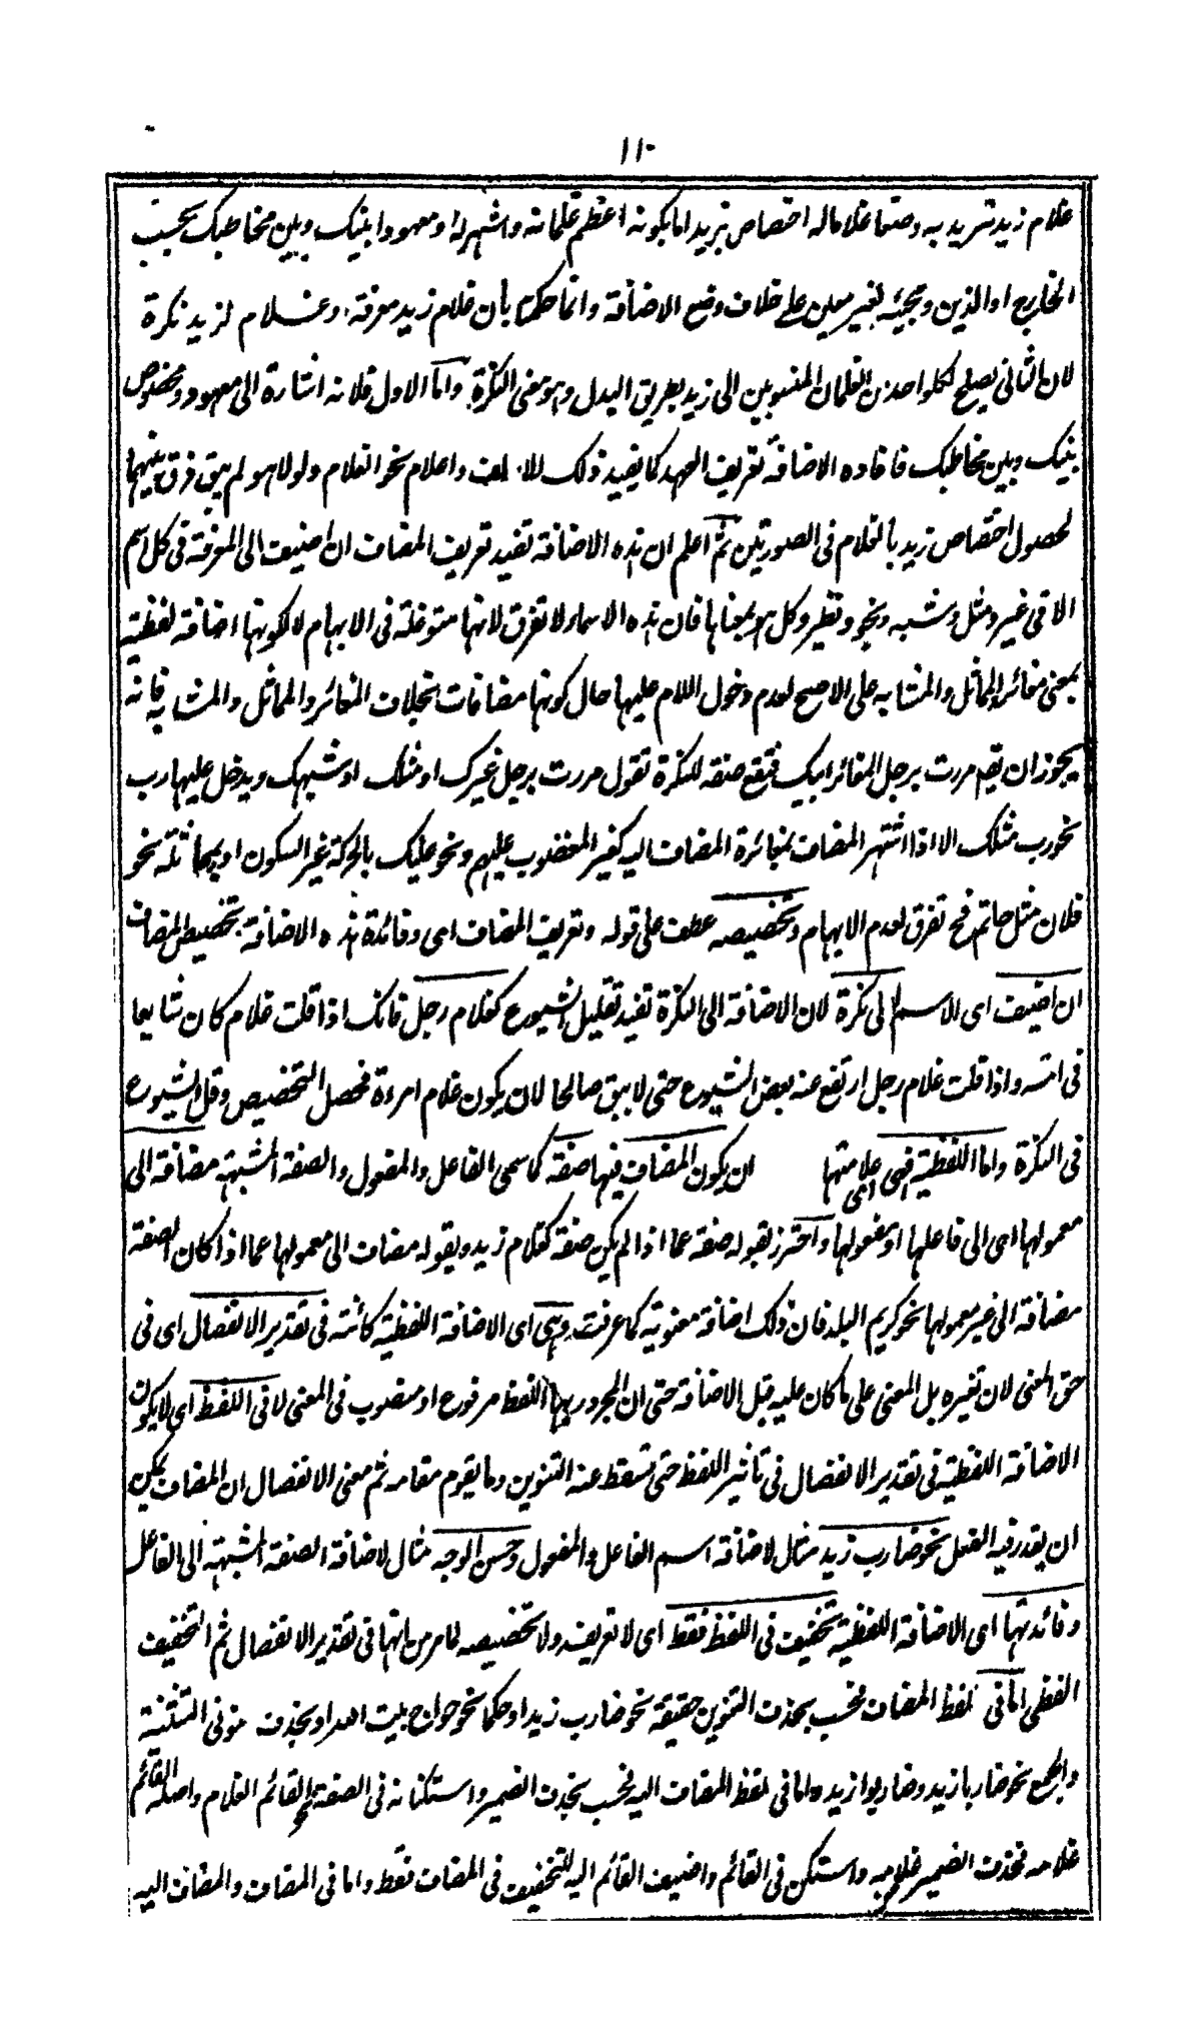 ١١٠
غلام زيد تشريد به وضعا غلاما له اختصاص بزيد اما بكونه اعظم غلمانه واشهر له او معهودا بينك وبين مخاطبك بحسب
الخارج او الذهن ومجيئه لغير معين على خلاف وضع الاضافة وانما حكمنا بأن غلام زيد معرفة وغلام لزيد نكرة
لان الثانى يصلح لكل واحد من الغلمان المنسوبين الى زيد بطريق البدل وهو معنى النكرة واما الاول فلانه اشارة الى معهود ومخصوص
بينك وبين مخاطبك فافاده الاضافة تعريف العهد كما يفيد ذلك الالف واللام نحو الغلام ولولا هو لم يبق فرق بينهما
لحصول اختصاص زيد بالغلام فى الصورتين ثم اعلم ان هذه الاضافة تفيد تعريف المضاف ان اضيفت الى المعرفة فى كل اسم
الا فى غير ومثل وشبه ونحو ونظير وكل هو بمعناها فان هذه الاسماء لا تعرف لانها متوغلة فى الابهام لا لكونها اضافة لفظية
بمعنى مغائر المماثل والمشابه على الاصح لعدم دخول اللام عليها حال كونها مضافات بخلاف المغائر والمماثل والمشابه فانه
يجوز ان يقم مررت برجل المغائر ابيك فتقع صفة للنكرة تقول مررت برجل غيرك او مثلك او شبهك ويدخل عليها رب
نحو رب مثلك الا اذا اشتهر المضاف بمغائرة المضاف اليه كغير المغضوب عليهم ونحو عليك بالحركة غير السكون او بمماثلة نحو
فلان مثل حاتم فح تعرف لعدم الابهام وتخصيصه عطف على قوله وتعريف المضاف اى وفائدة هذه الاضافة تخصيص المضاف
ان اضيفت اى الاسم الى نكرة لان الاضافة الى النكرة تفيد تقليل الشيوع كغلام رجل فانك اذا قلت غلام كان شايعا
فى امته واذا قلت غلام رجل ارتفع عنه بعض الشيوع حتى لا يبق صالحا لان يكون غلام امرءة فحصل التخصيص وقل الشيوع
فى النكرة واما اللفظية فهى اى علامتها ان يكون المضاف فيها صفة كاسمى الفاعل والمفعول والصفة المشبهة مضافة الى
معمولها اى الى فاعلها او مفعولها واحترز بقوله صفة عما اذا لم يكن صفة كغلام زيد وبقوله مضاف الى معمولها عما اذا كان الصفة
مضافة الى غير معمولها نحو كريم البلد فان ذلك اضافة معنوية كما عرفت وهى اى الاضافة اللفظية كائنة فى تقدير الانفصال اى فى
حق المعنى لان تغيره بل المعنى على ما كان عليه قبل الاضافة حتى ان المجرور بهذا اللفظ مرفوع او منصوب فى المعنى لا فى اللفظ اى لا يكون
الاضافة اللفظية فى تقدير الانفصال فى تاثير اللفظ حتى يسقط عنه التنوين وما يقوم مقامه ثم معنى الانفصال ان المضاف يمكن
ان يقدر فيه الفعل نحو ضارب زيد مثال لاضافة اسم الفاعل والمفعول وحسن الوجه مثال لاضافة الصفة المشبهة الى الفاعل
وفائدتها اى الاضافة اللفظية تخفيف فى اللفظ فقط اى لا تعريفه ولا تخصيصه لما مر من انها فى تقدير الانفصال ثم التخفيف
اللفظى اما فى لفظ المضاف فحسب بحذف التنوين حقيقة نحو ضارب زيد او حكما نحو حواج بيت الله او بحذف نونى التثنية
والجمع نحو ضاربا زيد وضاربوا زيد واما فى لفظ المضاف اليه فحسب بحذف الضمير واستكنانه فى الصفة نحو القائم الغلام واصله القائم
غلامه فحذف الضمير غلامه واستكن فى القائم واضيف القائم اليه للتخفيف فى المضاف فقط واما فى المضاف والمضاف اليه